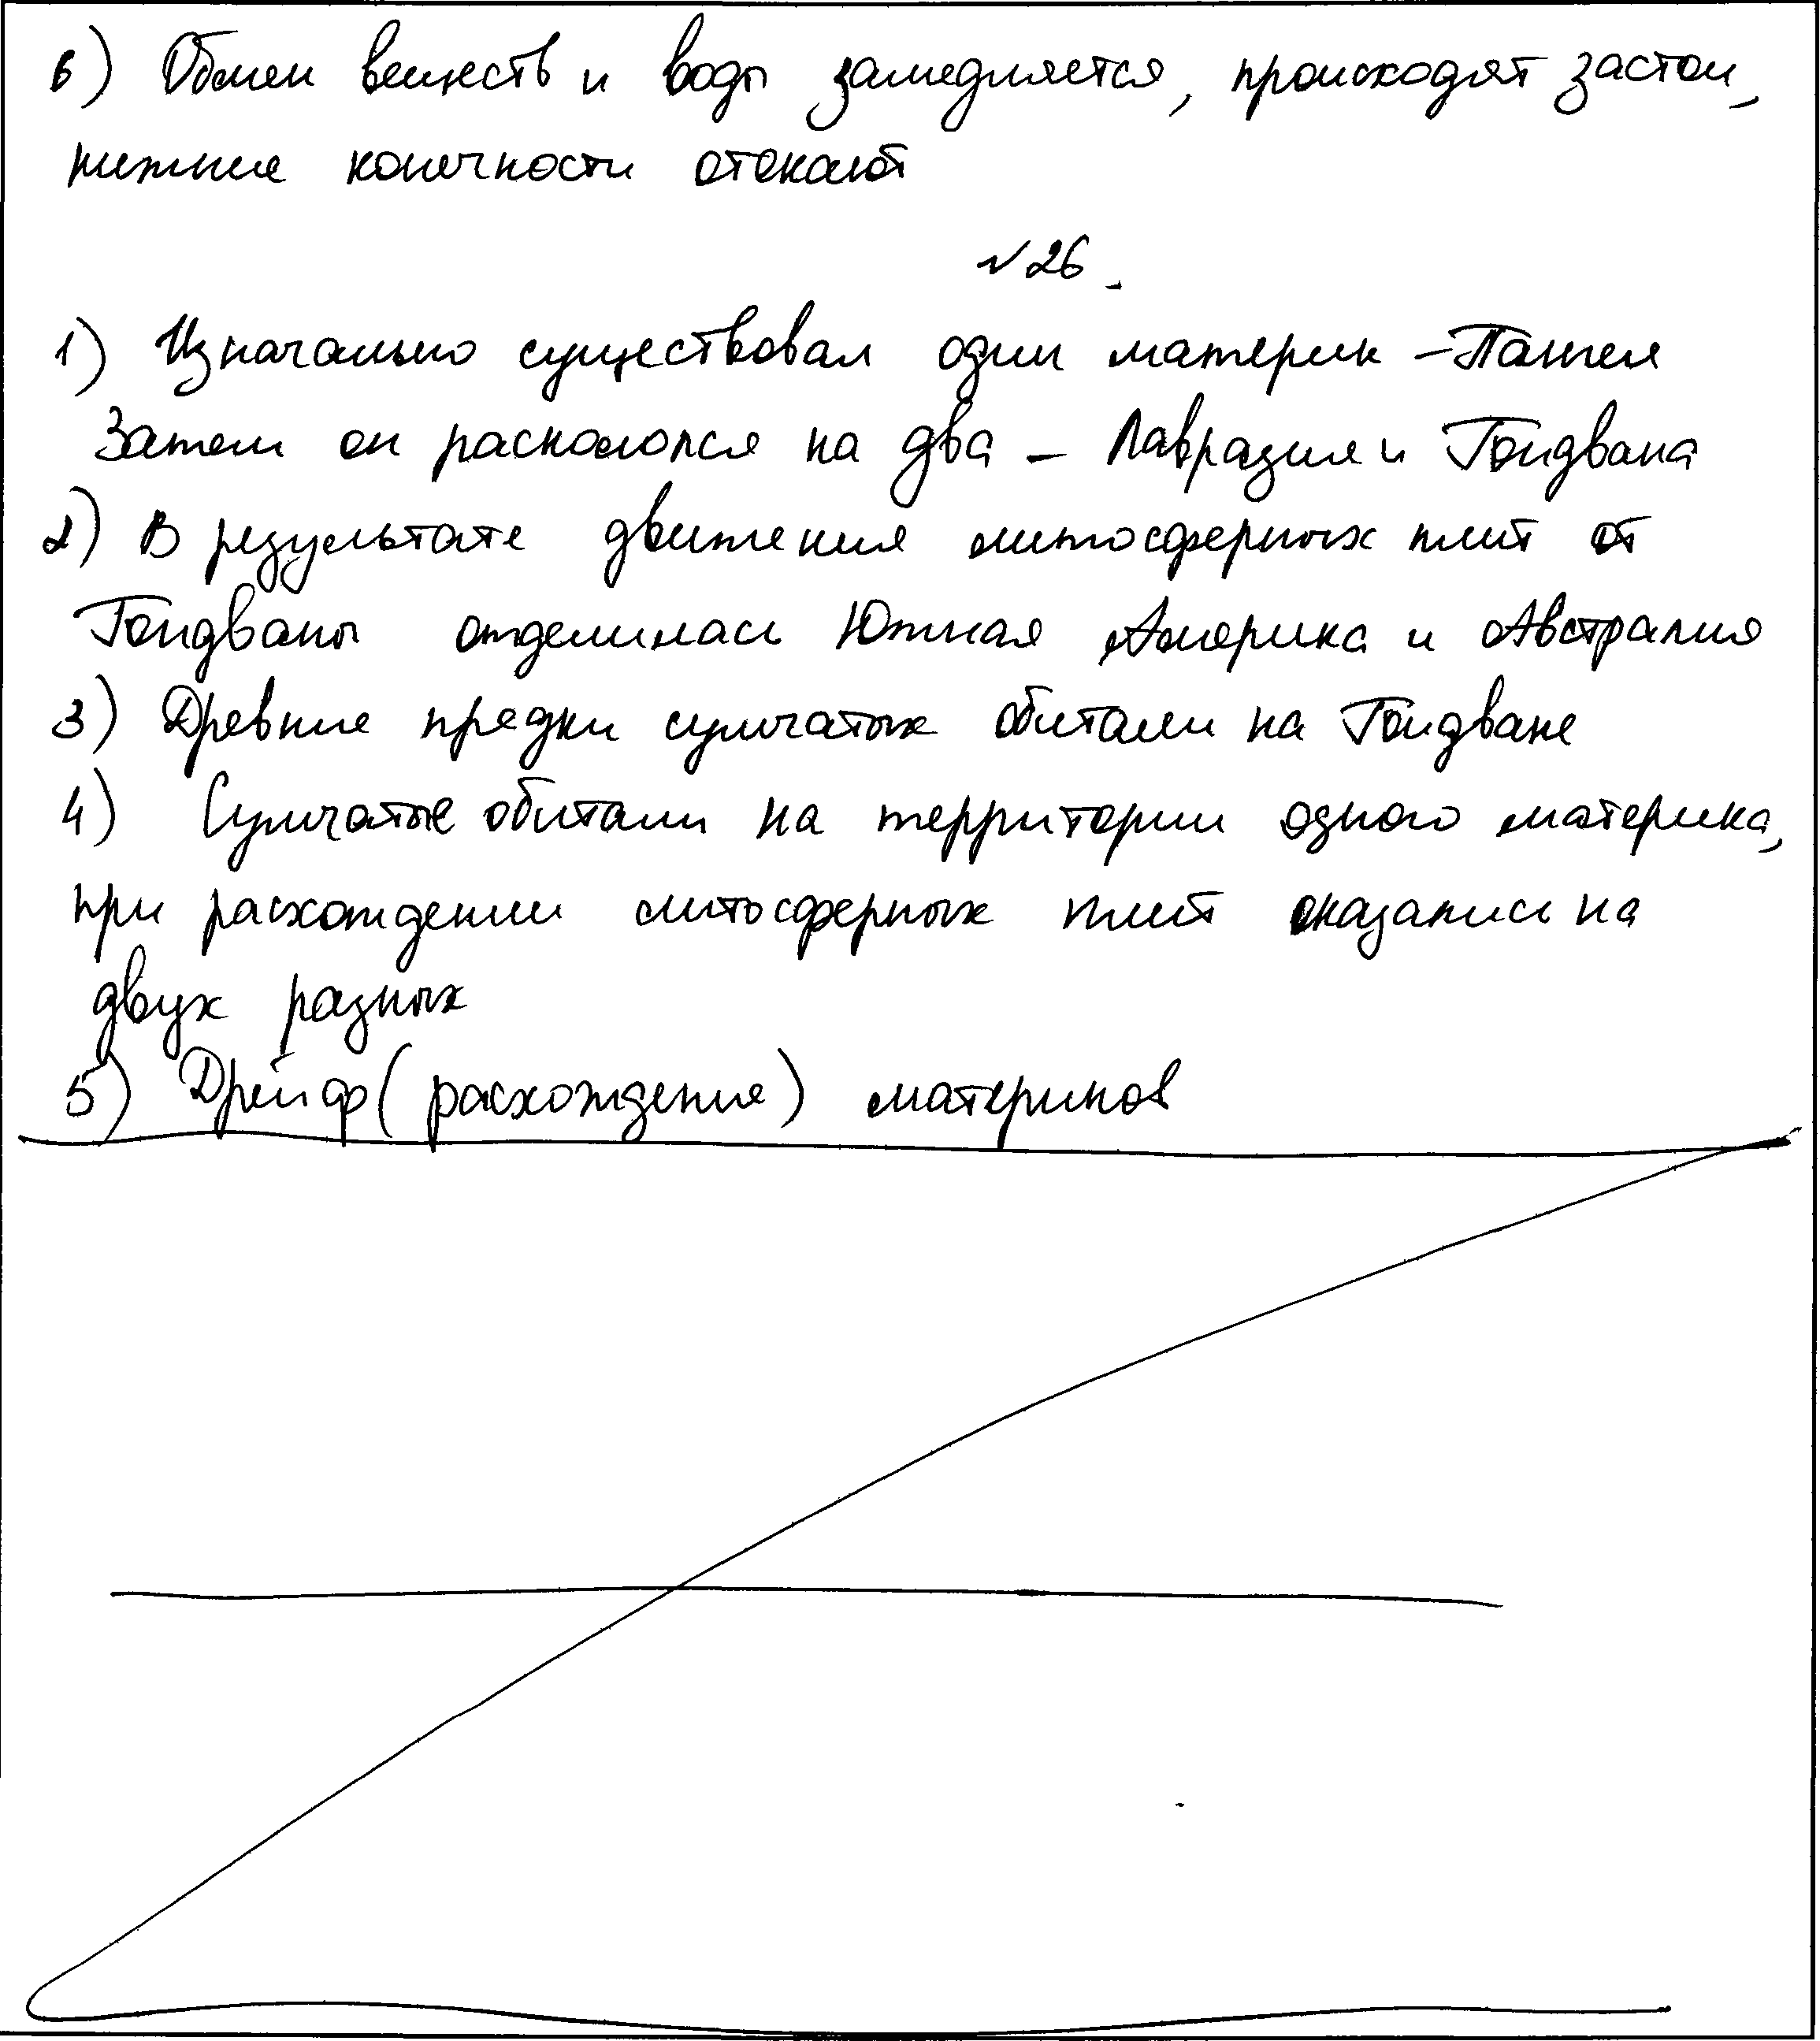 6) Обмен веществ и воды замедляется, происходят застои,
нижние конечности отекают
№26.
1) Изначально существовал один материк – Пангея
Затем он раскололся на два – Лавразия и Гондвана
2) В результате движения литосферных плит от
Гондваны отделилась Южная Америка и Австралия
3) Древние предки сумчатых обитали на Гондване
4) Сумчатые обитали на территории одного материка,
при расхождении литосферных плит оказались на
двух разных
5) Дрейф (расхождение) материков